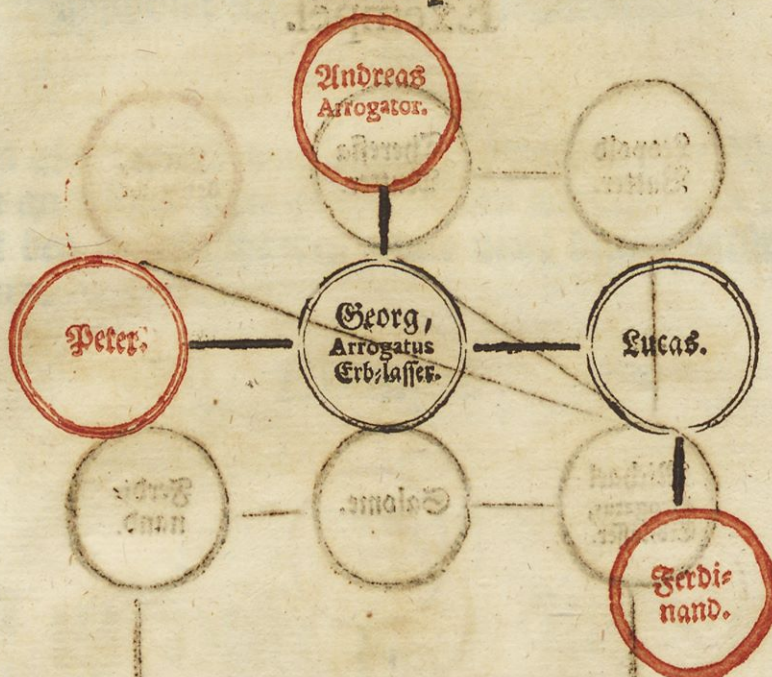 Andreas
Arrogator.
Peter.
Georg,
Arrogatus
Erb-lasser.
Lucas.
Ferdi-
nand.